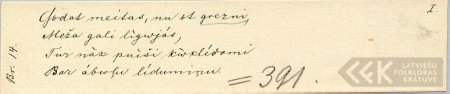 Godat meitas, nu ot grezni,
I.
Meža gali līgwjós,
Tur nāk puiši
Bar ábolu lídumiņu
=391.
Br. 14.
LATVIEŠU
FOLKLORAS
KRĀTUVE